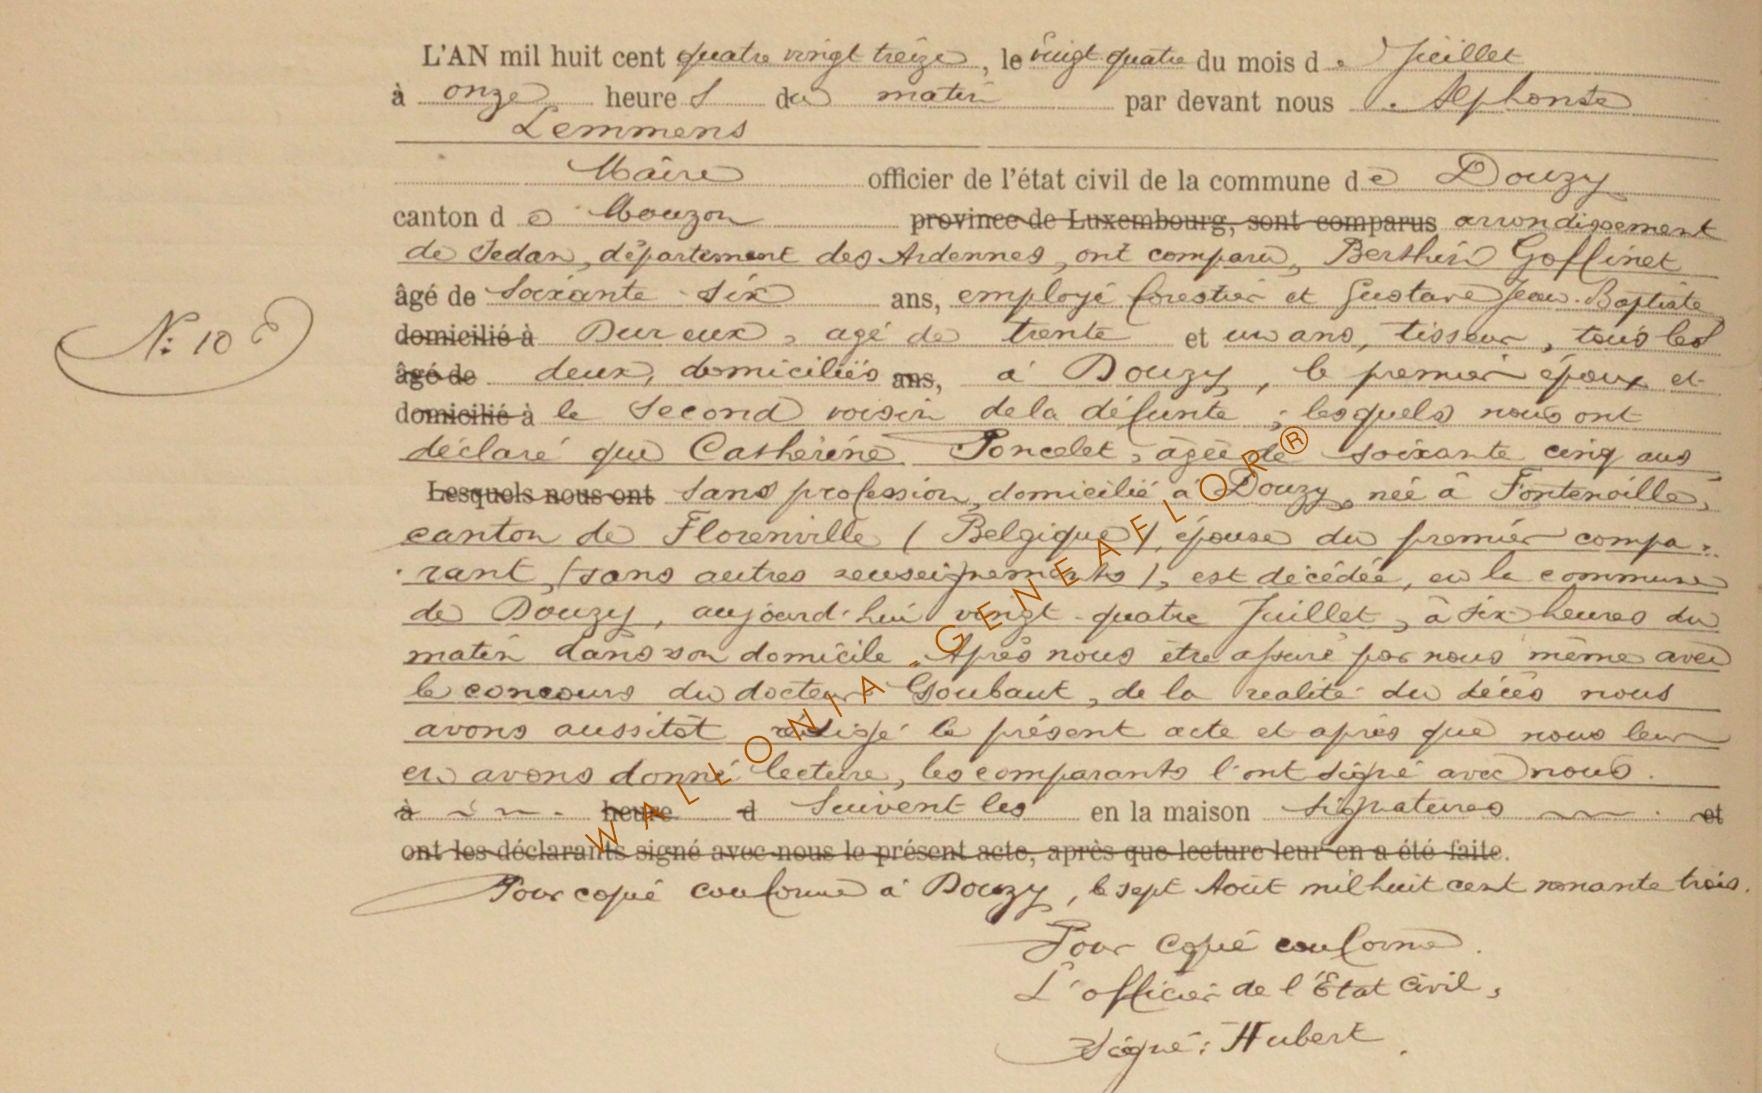 L'AN mil huit cent quatre vingt treize, le vingt quatre du mois de Juillet
à onze heures du matin par devant nous Alphonse
Lemmens
Maire officier de l'état civil de la commune de Douzy
canton de Mouzon province de Luxembourg, sont comparus arrondissement
de Sedan, département des Ardennes, ont comparu, Berthin Goffinet
âgé de soixante six ans, employé forestier et Gustave Jean-Baptiste
domicilié à Dureux, agé de trente et un ans, tisseur, tous les
âgé de deux, domiciliés ans, à Douzy, le premier époux et
domicilié à le second voisin de la défunte, lesquels nous ont
déclaré que Catherine Poncelet, agée de soixante cinq ans
Lesquels nous ont sans profession, domicilié à Douzy, née à Fontenoille,
canton de Florenville (Belgique), épouse du premier compa-
rant, (sans autres renseignements), est décédée, en la commune
de Douzy, aujourd'hui vingt-quatre Juillet, à six heures du
matin dans son domicile. Après nous être assuré par nous même avec
le concours du docteur Goubaut, de la réalité du décès nous
avons aussitôt rédigé le présent acte et après que nous leur
en avons donné lecture, les comparants l'ont signé avec nous.
à heure d Suivent les en la maison signatures et
ont les déclarants signé avec nous le présent acte, après que lecture leur en a été faite.
Pour copie conforme à Douzy, le sept Août mil huit cent nonante trois.
Pour copie conforme.
L'officier de l'État Civil,
Signé: Hubert.
N: 10
WALLONIA.GENEAFLOR®